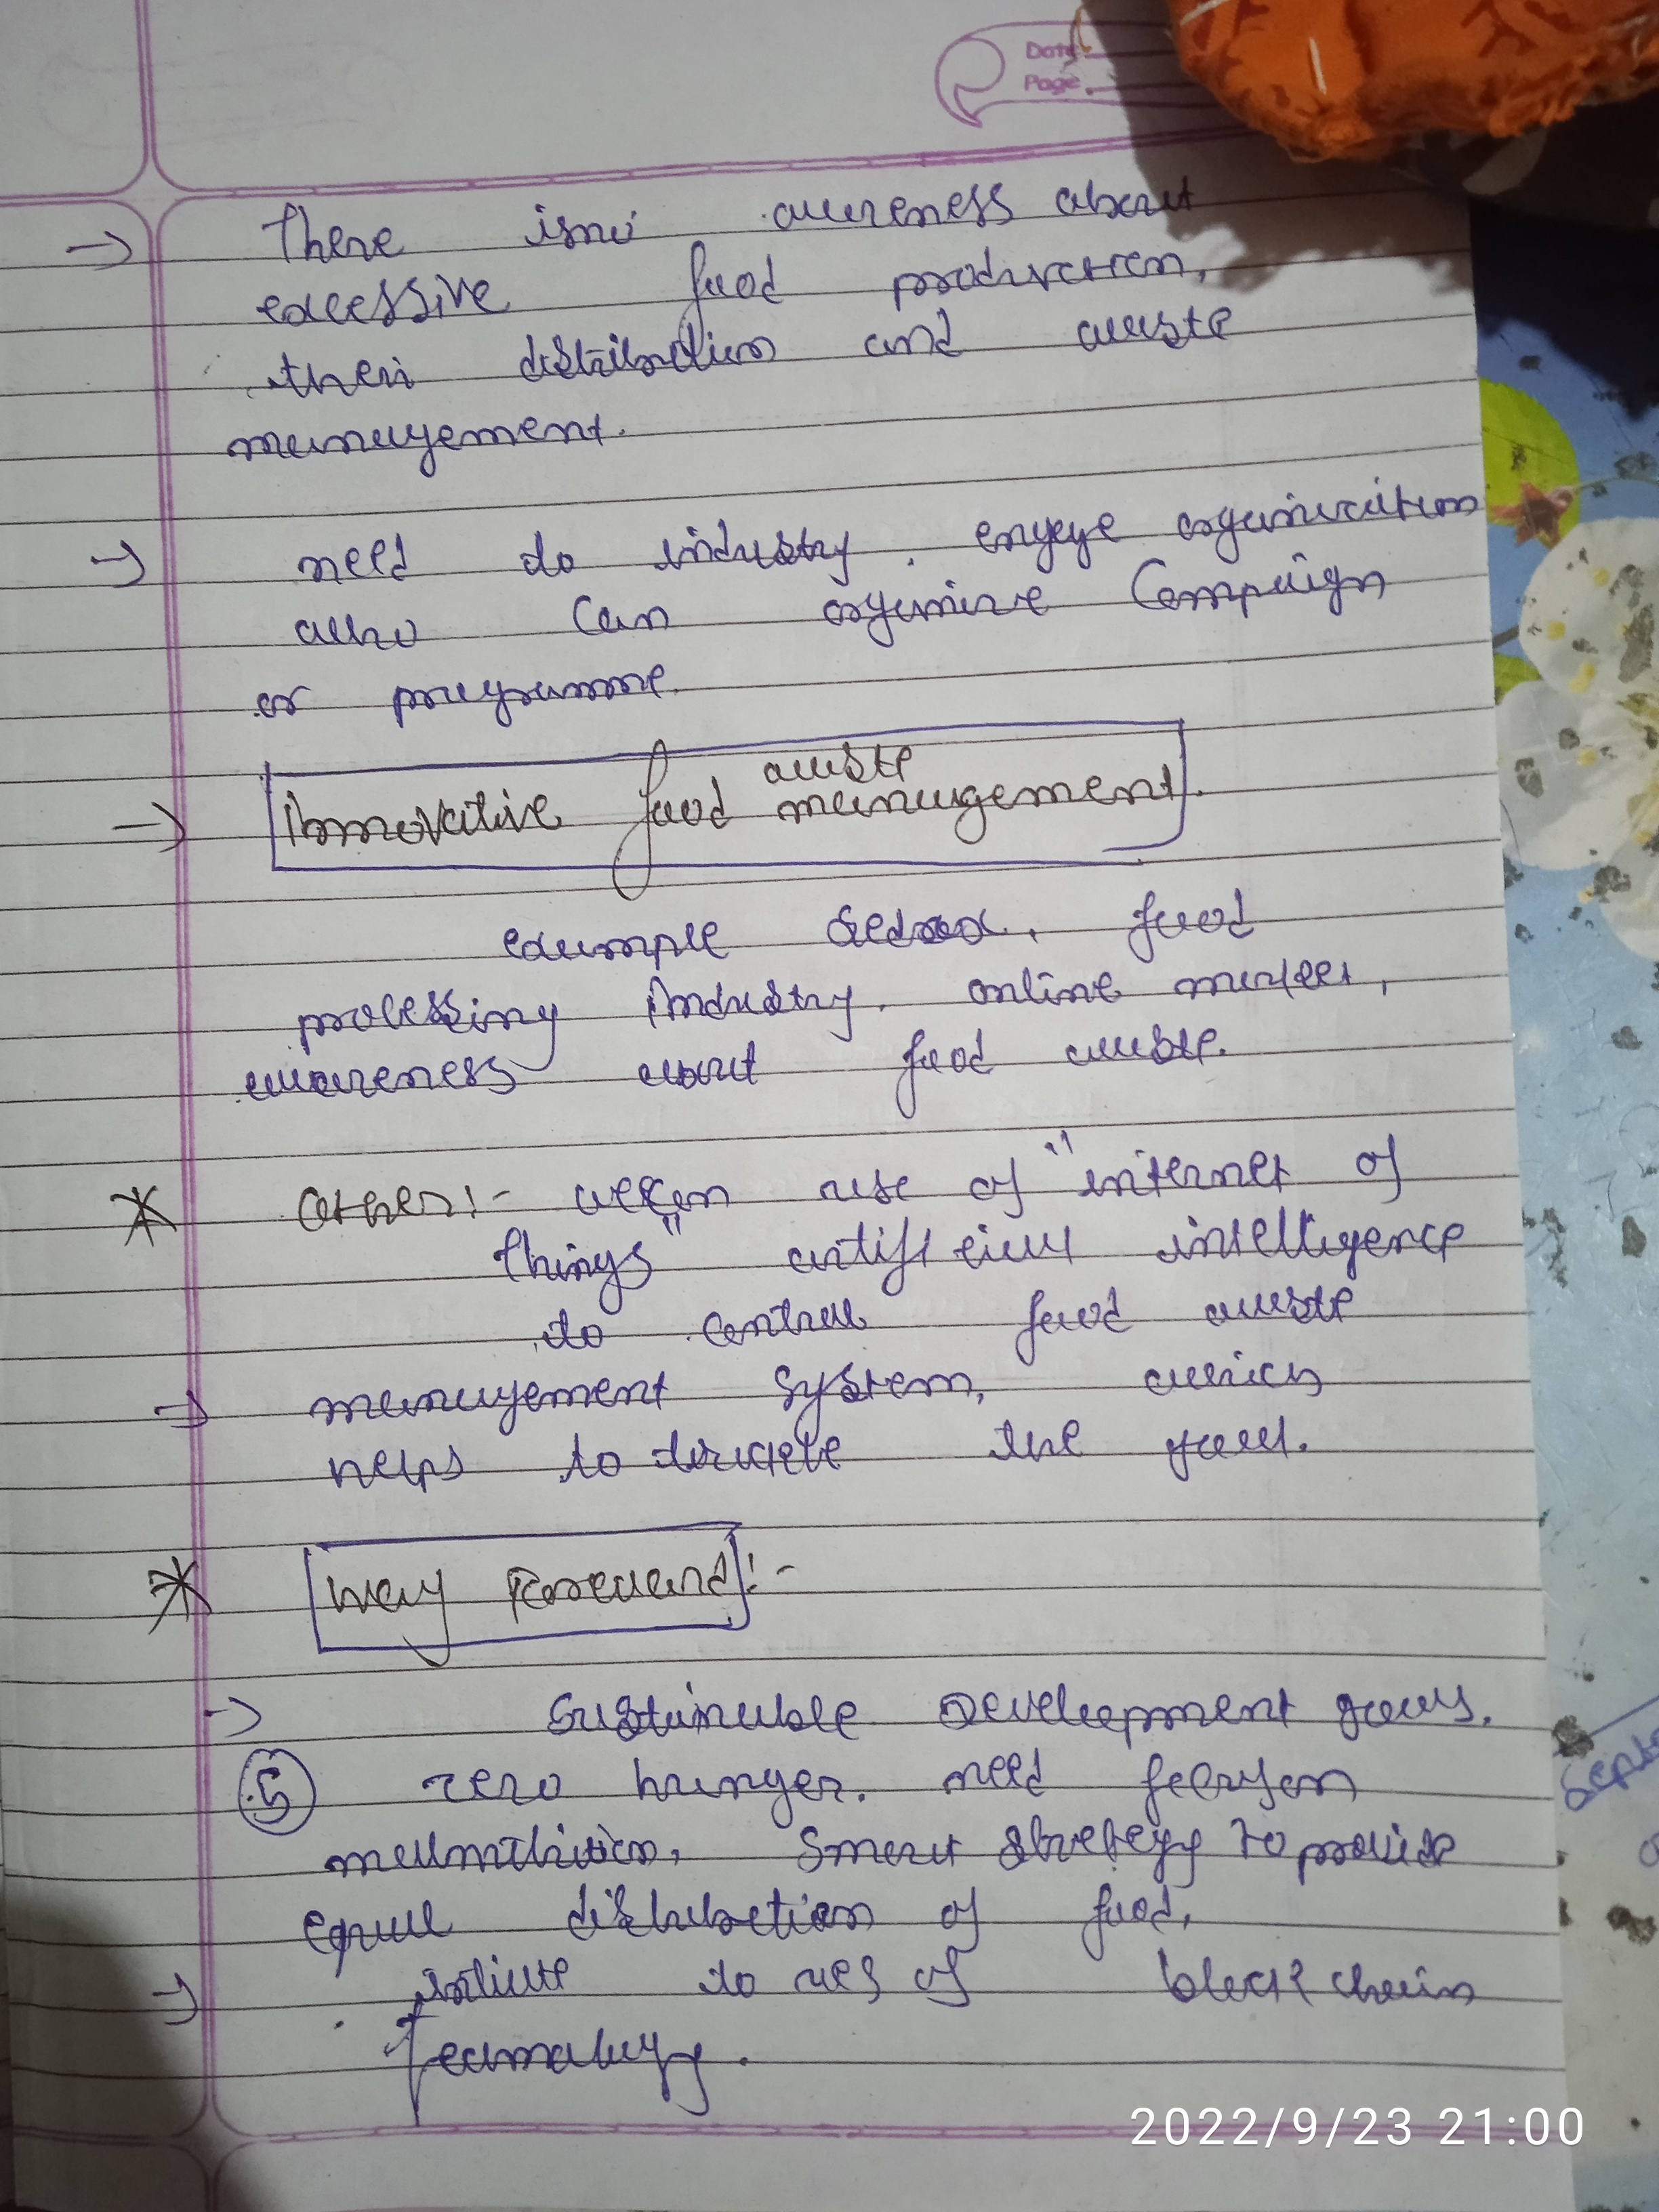 Date
Page
→ There is no awareness about
excessive food production,
their distribution and waste
management.
→ need to industry. engage organization
who can organize Campaign
or programme.
waste
→ Innovative food management.
example food
processing industry. online market,
awareness about food waste.
* Other:- we can use of "internet of
things" artificial intelligence
to control food waste
→ management system, which
helps to the goal.
* Way Forward:-
→ Sustainable Development goals.
zero hunger. need
malnutrition, Smart strategy to provide
equal distribution of food.
→ to use of block chain
Technology.
2022/9/23 21:00